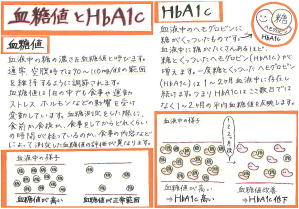 血糖値とHbA1c
血糖値
血液中の糖の濃さを血糖値と呼びます。
通常、空腹時では70〜110mg/dlの範囲
を維持するように調節されます。
血糖値は1日の中でも食事や運動
ストレス、ホルモンなどの影響を受け
変動しています。血糖測定をした際に、
食前か食後か、食事をしてからどれくらい
の時間が経っているのか、食事の内容など
によって測定した血糖値の評価が異なります。
血液中の様子
血糖値が高い
血糖値が正常範囲
HbA1c
糖
HbA1c
血液中のヘモグロビンに
糖がくっついたものです。
血液中に糖がたくさんあるほど、
糖とくっついたヘモグロビン(HbA1c)が
増えます。一度糖とくっついたヘモグロビン
(HbA1c)は1〜2ヵ月血液中に存在し
続けます。つまりHbA1cはここ数日では
なく1〜2ヶ月の平均血糖値を反映します。
血液中の様子
1〜2ヵ月後
血糖値が高い
⇒HbA1c高い
血糖値改善
⇒HbA1c低下